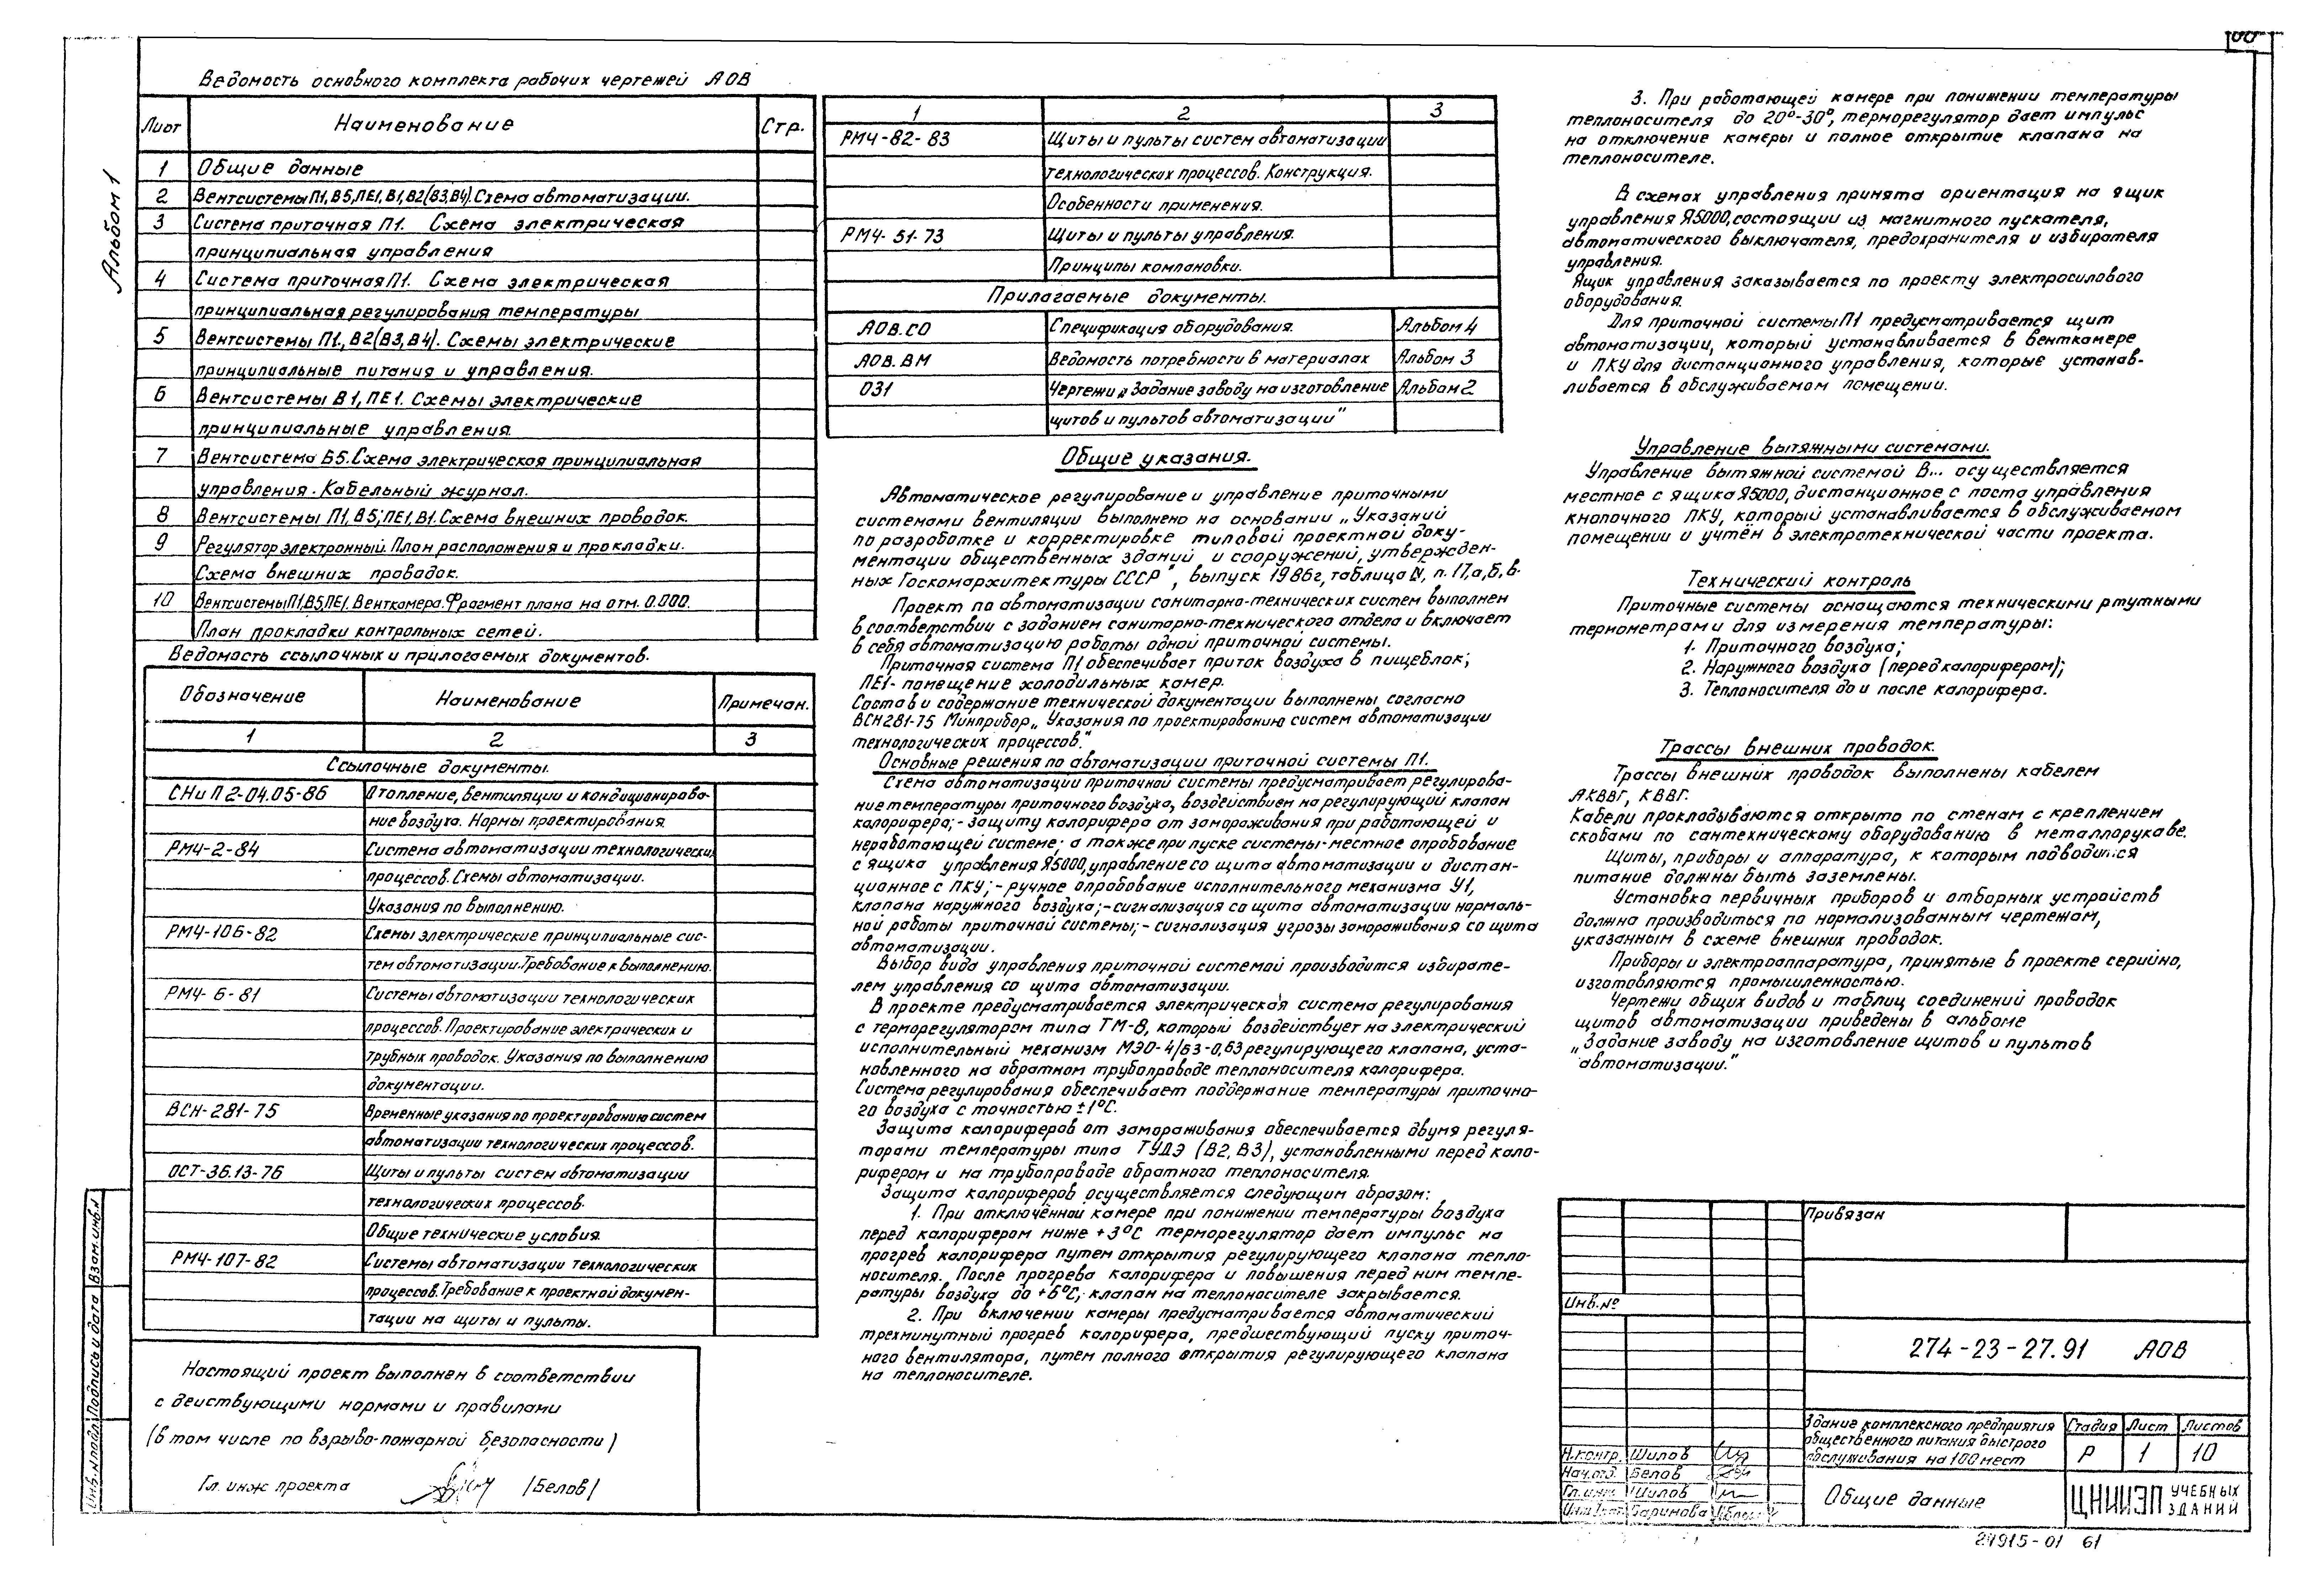 Альбом 1
Ведомость основного комплекта рабочих чертежей АОВ
Лист Наименование Стр.
1 Общие данные
2 Вентсистемы П1, В5, ПЕ1, В1, В2(В3,В4). Схема автоматизации.
3 Система приточная П1. Схема электрическая
принципиальная управления
4 Система приточная П1. Схема электрическая
принципиальная регулирования температуры
5 Вентсистемы П1., В2(В3,В4). Схемы электрические
принципиальные питания и управления.
6 Вентсистемы В1, ПЕ1. Схемы электрические
принципиальные управления.
7 Вентсистема Б5. Схема электрическая принципиальная
управления. Кабельный журнал.
8 Вентсистемы П1, В5, ПЕ1, В1. Схема внешних проводок.
9 Регулятор электронный. План расположения и прокладки.
Схема внешних проводок.
10 Вентсистемы П1,В5,ПЕ1. Венткамера. Фрагмент плана на отм. 0.000.
План прокладки контрольных сетей.
Ведомость ссылочных и прилагаемых документов.
Обозначение Наименование Примечан.
1 2 3
Ссылочные документы.
СНиП 2-04.05-86 Отопление, вентиляции и кондициониров-
ние воздуха. Нормы проектирования.
РМ4-2-84 Система автоматизации технологически
процессов. Схемы автоматизации.
Указания по выполнению.
РМ4-106-82 Схемы электрические принципиальные сис-
тем автоматизации. Требование к выполнению.
РМ4-6-81 Системы автоматизации технологических
процессов. Проектирование электрических и
трубных проводок. Указания по выполнению
документации.
ВСН-281-75 Временные указания по проектированию систем
автоматизации технологических процессов.
ОСТ-36.13-76 Щиты и пульты систем автоматизации
технологических процессов.
Общие технические условия.
РМ4-107-82 Системы автоматизации технологических
процессов. Требование к проектной докумен-
тации на щиты и пульты.
Настоящий проект выполнен в соответствии
с действующими нормами и правилами
(в том числе по взрыво-пожарной безопасности)
Гл. инж проекта /Белов/
1 2 3
РМ4-82-83 Щиты и пульты систем автоматизации
технологических процессов. Конструкция.
Особенности применения.
РМ4-51-73 Щиты и пульты управления.
Принципы компановки.
Прилагаемые документы.
АОВ.СО Спецификация оборудования. Альбом 4
АОВ.ВМ Ведомость потребности в материалах Альбом 3
ОЗ1 Чертежи „Задание заводу на изготовление Альбом 2
щитов и пультов автоматизации"
Общие указания.
Автоматическое регулирование и управление приточными
системами вентиляции выполнено на основании „Указаний
по разработке и корректировке типовой проектной доку-
ментации общественных зданий и сооружений, утвержден-
ных Госкомархитектуры СССР", выпуск 1986г, таблица IV, п. 17,а,б,в.
Проект по автоматизации санитарно-технических систем выполнен
в соответствии с заданием санитарно-технического отдела и включает
в себя автоматизацию работы одной приточной системы.
Приточная система П1 обеспечивает приток воздуха в пищеблок;
ПЕ1- помещение холодильных камер.
Состав и содержание технической документации выполнены согласно
ВСН281-75 Минприбор „Указания по проектированию систем автоматизации
технологических процессов."
Основные решения по автоматизации приточной системы П1.
Схема автоматизации приточной системы предусматривает регулирова-
ние температуры приточного воздуха, воздействием на регулирующий клапан
калорифера; - защиту калорифера от замораживания при работающей и
неработающей системе; а также при пуске системы - местное опробование
с ящика управления Я5000, управление со щита автоматизации и дистан-
ционное с ПКУ; - ручное опробование исполнительного механизма У1,
клапана наружного воздуха; - сигнализация со щита автоматизации нормаль-
ной работы приточной системы; - сигнализация угрозы замораживания со щита
автоматизации.
Выбор вида управления приточной системой производится избирате-
лем управления со щита автоматизации.
В проекте предусматривается электрическая система регулирования
с терморегулятором типа ТМ-8, который воздействует на электрический
исполнительный механизм МЭО-4/63-0,63 регулирующего клапана, уста-
новленного на обратном трубопроводе теплоносителя калорифера.
Система регулирования обеспечивает поддержание температуры приточно-
го воздуха с точностью ±1°С.
Защита калориферов от замораживания обеспечивается двумя регуля-
торами температуры типа ТУДЭ (В2, В3), установленными перед кало-
рифером и на трубопроводе обратного теплоносителя.
Защита калориферов осуществляется следующим образом:
1. При отключённой камере при понижении температуры воздуха
перед калорифером ниже +3°С терморегулятор дает импульс на
прогрев калорифера путем открытия регулирующего клапана тепло-
носителя. После прогрева калорифера и повышения перед ним темпе-
ратуры воздуха до +5°С, клапан на теплоносителе закрывается.
2. При включении камеры предусматривается автоматический
трехминутный прогрев калорифера, предшествующий пуску приточ-
ного вентилятора, путем полного открытия регулирующего клапана
на теплоносителе.
3. При работающей камере при понижении температуры
теплоносителя до 20°-30°, терморегулятор дает импульс
на отключение камеры и полное открытие клапана на
теплоносителе.
В схемах управления принята ориентация на ящик
управления Я5000, состоящий из магнитного пускателя,
автоматического выключателя, предохранителя и избирателя
управления.
Ящик управления заказывается по проекту электросилового
оборудования.
Для приточной системы П1 предусматривается щит
автоматизации, который устанавливается в венткамере
и ПКУ для дистанционного управления, которые устанав-
ливается в обслуживаемом помещении.
Управление вытяжными системами.
Управление вытяжной системой В1... осуществляется
местное с ящика Я5000, дистанционное с поста управления
кнопочного ПКУ, который устанавливается в обслуживаемом
помещении и учтён в электротехнической части проекта.
Технический контроль
Приточные системы оснащаются техническими ртутными
термометрами для измерения температуры:
1. Приточного воздуха;
2. Наружного воздуха (перед калорифером);
3. Теплоносителя до и после калорифера.
Трассы внешних проводок.
Трассы внешних проводок выполнены кабелем
АКВВГ, КВВГ.
Кабели прокладываются открыто по стенам с креплением
скобами по сантехническому оборудованию в металлорукаве.
Щиты, приборы и аппаратура, к которым подводится
питание должны быть заземлены.
Установка первичных приборов и отборных устройств
должна производиться по нормализованным чертежам,
указанным в схеме внешних проводок.
Приборы и электроаппаратура, принятые в проекте серийно,
изготовляются промышленностью.
Чертежи общих видов и таблиц соединений проводок
щитов автоматизации приведены в альбоме
„Задание заводу на изготовление щитов и пультов
автоматизации."
Привязан
Инв.№
274-23-27.91 АОВ
Здание комплексного предприятия
общественного питания быстрого
обслуживания на 100 мест
Стадия Лист Листов
Р 1 10
Н.контр. Шилов
Нач.отд. Белов
Гл.инж Шилов
Баринова
Общие данные
ЦНИИЭП УЧЕБНЫХ ЗДАНИЙ
24915-01 61
Инв.№подл Подпись и дата Взам.инв.№